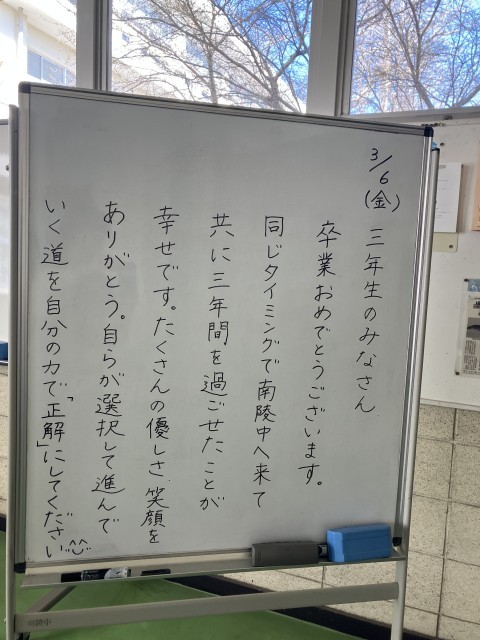 3/6(金)
三年生のみなさん
卒業おめでとうございます。
同じタイミングで南陵中へ来て
共に三年間を過ごせたことが
幸せです。たくさんの優しさ、笑顔を
ありがとう。自らが選択して進んで
いく道を自分の力で「正解」にしてください^^